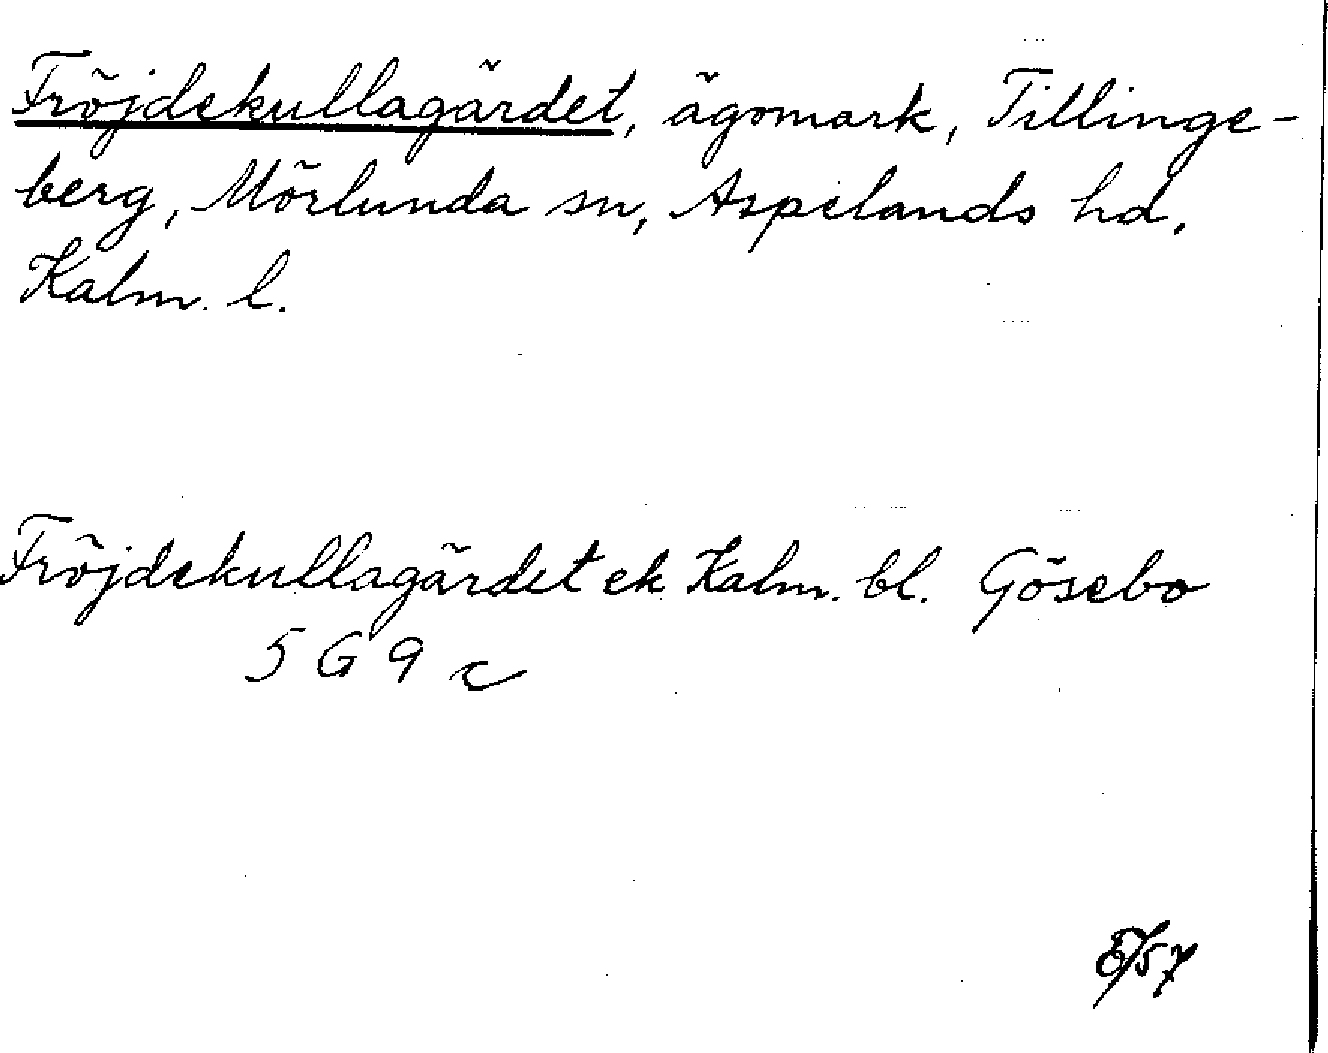 Fröjdekullagärdet, ägomark, Tillinge-
berg, Mörlunda sn, Aspelands hd,
Kalm. l.
Fröjdekullagärdet ek Kalm. bl. Gösebo
5 G 9 c